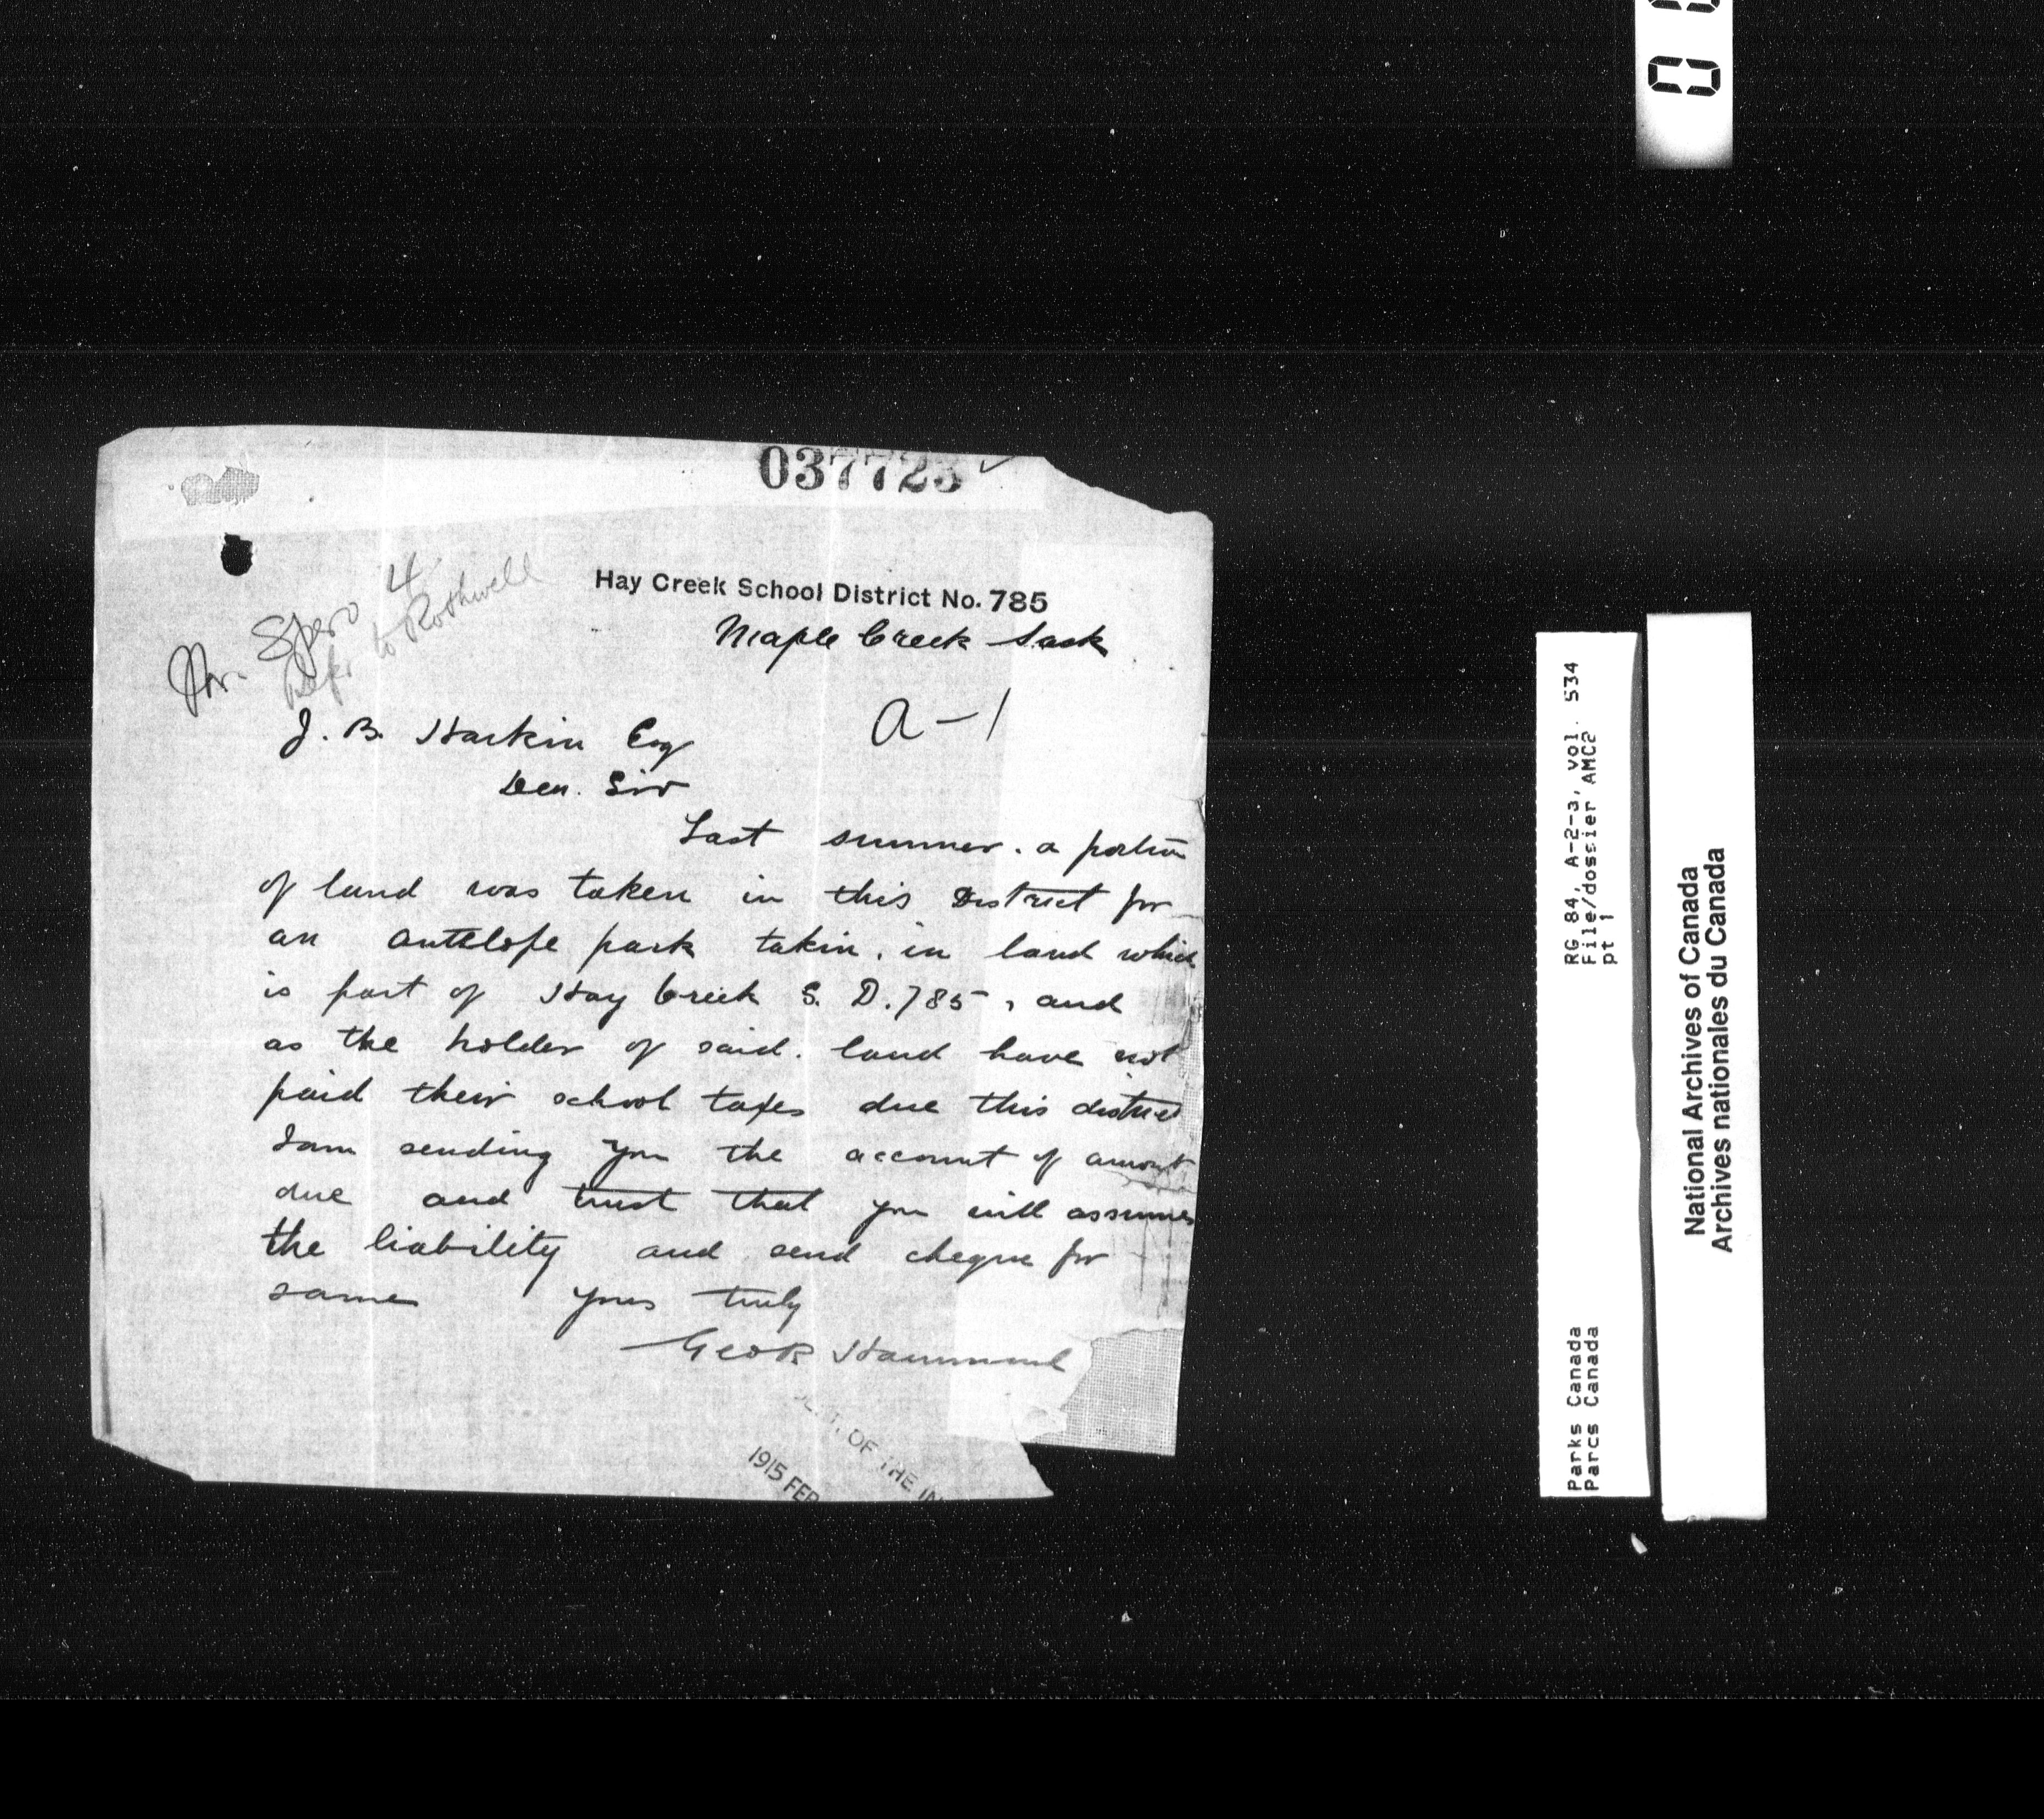 037723
Mr. Spero 4
Refer to Rothwell
Hay Creek School District No. 785
Maple Creek Sask
A-1
J. B. Harkin Esq
Dear Sir
Last summer. a portion
of land was taken in this District for
an antelope park takin. in land which
is part of Hay Creek S. D. 785, and
as the holder of said. land have not
paid their school taxes due this district
I am sending you the account of amount
due and trust that you will assume
the liability and send cheque for
same yours truly
Geo R Hammond
DEPT. OF THE IN
1915 FEB
RG 84, A-2-a, vol. 534
File/dossier AMC2
pt 1
Parks Canada
Parcs Canada
National Archives of Canada
Archives nationales du Canada